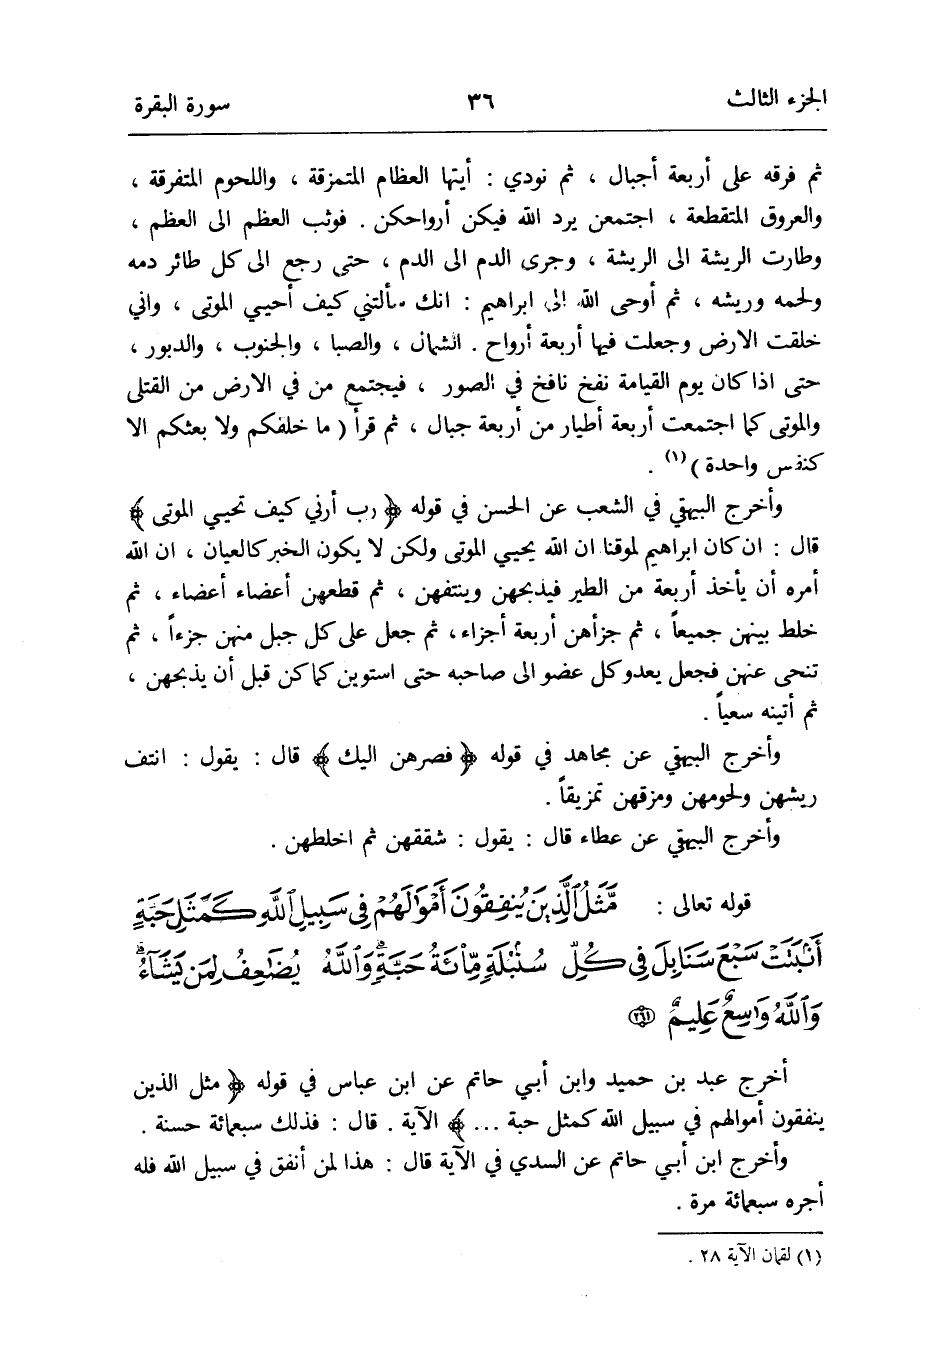 الجزء الثالث ٣٦ سورة البقرة
ثم فرقه على أربعة أجبال ، ثم نودي : أيتها العظام المتمزقة ، واللحوم المتفرقة ،
والعروق المتقطعة ، اجتمعن يرد الله فيكن أرواحكن . فوثب العظم الى العظم ،
وطارت الريشة الى الريشة ، وجرى الدم الى الدم ، حتى رجع الى كل طائر دمه
ولحمه وريشه ، ثم أوحى الله الى ابراهيم : انك سألتني كيف أحيي الموتى ، واني
خلقت الارض وجعلت فيها أربعة أرواح . الشمال ، والصبا ، والجنوب ، والدبور ،
حتى اذا كان يوم القيامة نفخ نافخ في الصور ، فيجتمع من في الارض من القتلى
والموتى كما اجتمعت أربعة أطيار من أربعة جبال ، ثم قرأ ( ما خلفكم ولا بعثكم الا
كنفس واحدة ) (١) .
وأخرج البيهقي في الشعب عن الحسن في قوله ﴿ رب أرني كيف تحيي الموتى ﴾
قال : ان كان ابراهيم لموقنا ان الله يحيي الموتى ولكن لا يكون الخبر كالعيان ، ان الله
أمره أن يأخذ أربعة من الطير فيذبحهن وينتفهن ، ثم قطعهن أعضاء أعضاء ، ثم
خلط بينهن جميعاً ، ثم جزأهن أربعة أجزاء ، ثم جعل على كل جبل منهن جزءاً ، ثم
تنحى عنهن فجعل يعدو كل عضو الى صاحبه حتى استوين كما كن قبل أن يذبحهن ،
ثم أتينه سعياً .
وأخرج البيهقي عن مجاهد في قوله ﴿ فصرهن اليك ﴾ قال : يقول : انتف
ريشهن ولحومهن ومزقهن تمزيقاً .
وأخرج البيهقي عن عطاء قال : يقول : شققهن ثم اخلطهن .
قوله تعالى : مَّثَلُ ٱلَّذِينَ يُنفِقُونَ أَمْوَٰلَهُمْ فِى سَبِيلِ ٱللَّهِ كَمَثَلِ حَبَّةٍ
أَنۢبَتَتْ سَبْعَ سَنَابِلَ فِى كُلِّ سُنۢبُلَةٍ مِّا۟ئَةُ حَبَّةٍ ۗ وَٱللَّهُ يُضَٰعِفُ لِمَن يَشَآءُ ۗ
وَٱللَّهُ وَٰسِعٌ عَلِيمٌ ٢٦١
أخرج عبد بن حميد وابن أبي حاتم عن ابن عباس في قوله ﴿ مثل الذين
ينفقون أموالهم في سبيل الله كمثل حبة ... ﴾ الآية . قال : فذلك سبعمائة حسنة .
وأخرج ابن أبي حاتم عن السدي في الآية قال : هذا لمن أنفق في سبيل الله فله
أجره سبعمائة مرة .
(١) لقمان الآية ٢٨ .